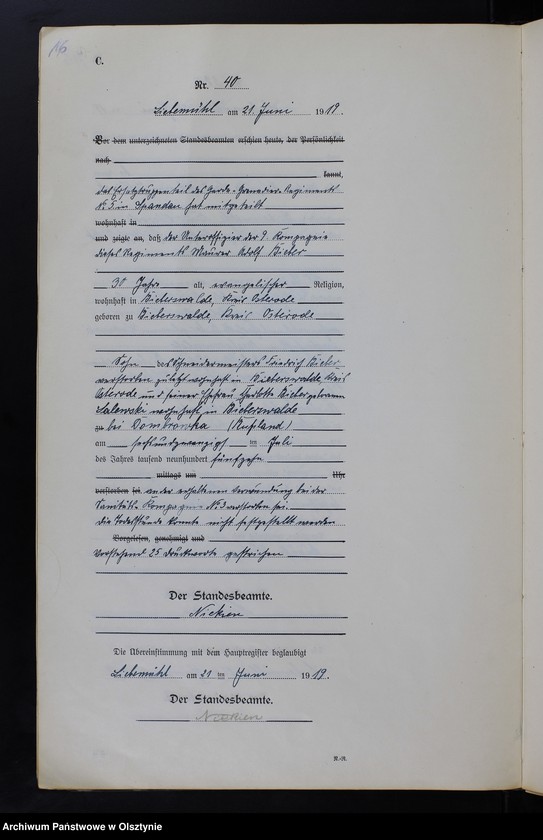 C.
Nr. 40
Liebemühl am 21. Juni 1919.
Vor dem unterzeichneten Standesbeamten erschien heute, der Persönlichkeit
nach
kannt,
des Garde-Grenadier-Regiments
No 5 in Spandau hat mitgeteilt
wohnhaft in
und zeigte an, daß der Unteroffizier der 9. Kompagnie
dieses Regiments Maurer Adolf
30 Jahre alt, evangelischer Religion,
wohnhaft in Bieberswalde, Kreis Osterode
geboren zu Bieberswalde, Kreis Osterode
Sohn des Schneidermeisters Friedrich
verstorben zuletzt wohnhaft in Bieberswalde, Kreis
Osterode und seiner Ehefrau Charlotte geborenen
wohnhaft in Bieberswalde
zu bei Dombrowka (Rußland)
am sechsundzwanzigs ten Juli
des Jahres tausend neunhundert fünfzehn
mittags um Uhr
verstorben sei an der erhaltenen Verwundung bei der
Sanitäts-Kompagnie No 3 verstorben sei.
Die Todesstunde konnte nicht festgestellt werden
Vorgelesen, genehmigt und
Vorstehend 25 Druckworte gestrichen
Der Standesbeamte.
Die Übereinstimmung mit dem Hauptregister beglaubigt
Liebemühl am 21 ten Juni 1919.
Der Standesbeamte.
Archiwum Państwowe w Olsztynie